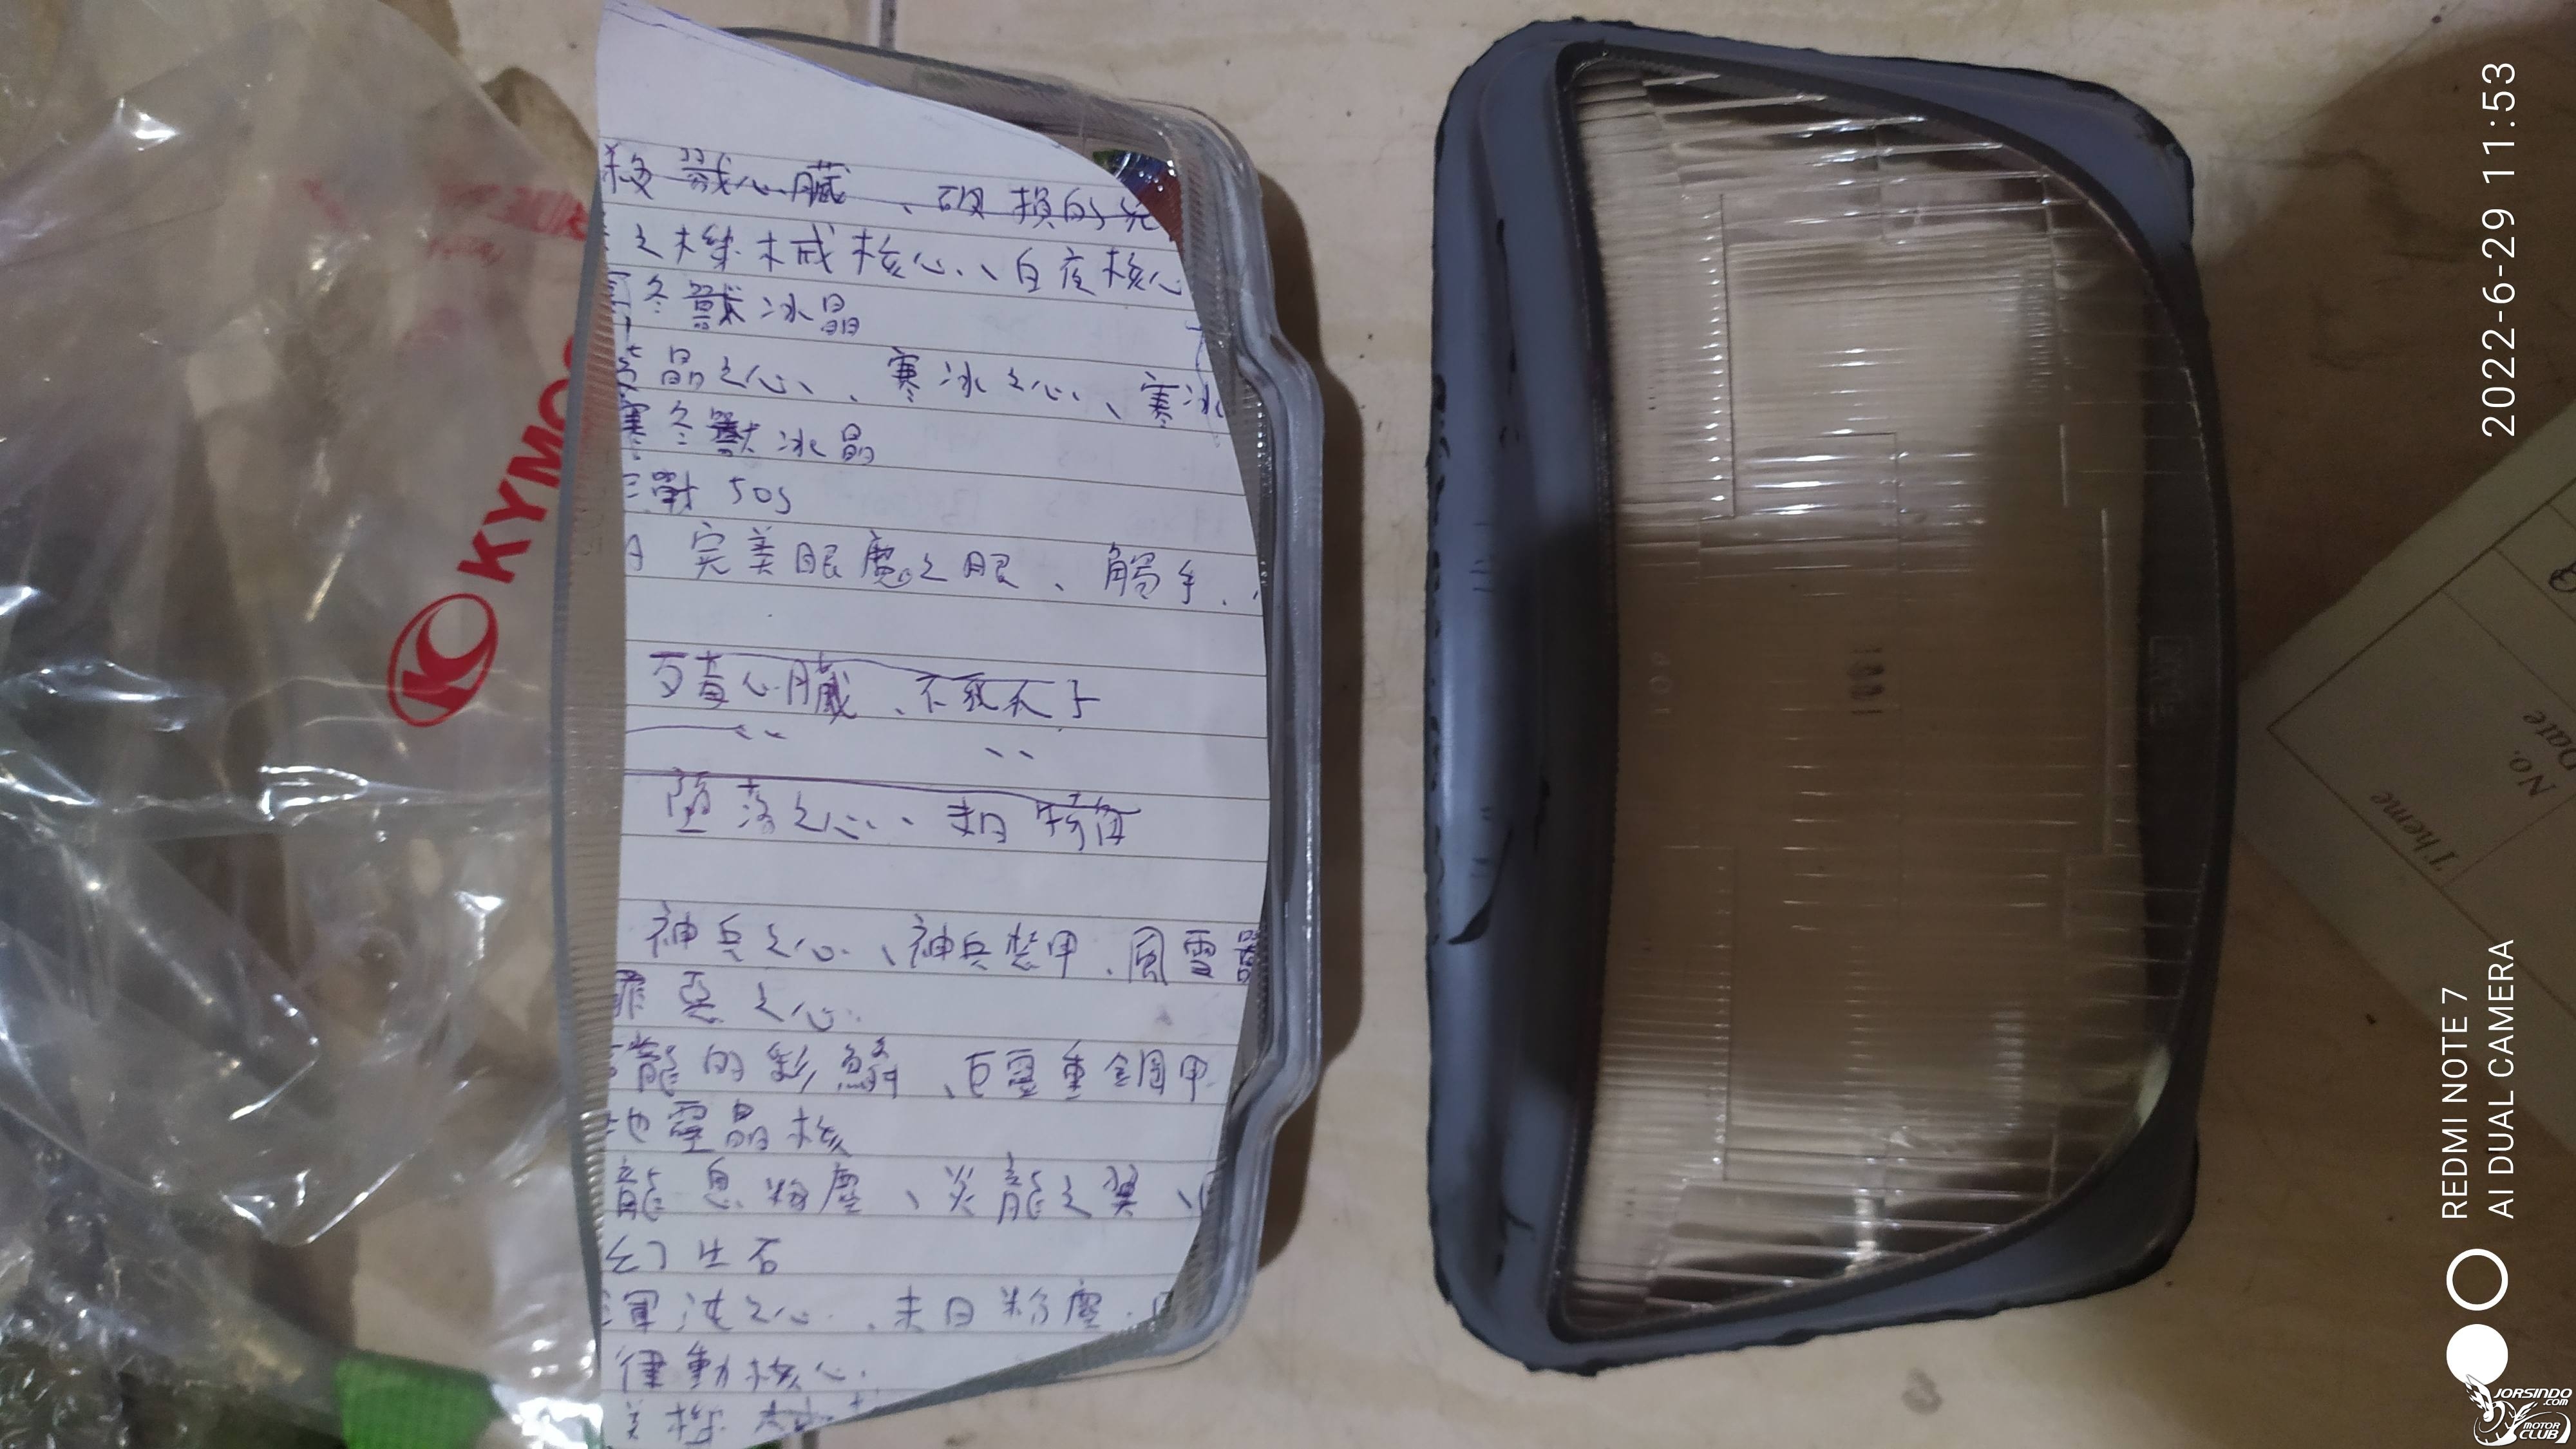 破損的
之機械核心、白夜核心
冬獸冰晶
晶之心、寒冰之心、寒冰
寒冬獸冰晶
戰 50s
完美眼魔之眼、觸手、
心臟、不死
墮落之心、末日犄角
神兵之心、神兵裝甲、風雪
罪惡之心
龍的彩鱗、巨靈重鋼甲
地靈晶核
龍息粉塵、炎龍之翼、
幻生石
渾沌之心、末日粉塵、
律動核心
KYMCO
Theme
No.
Date
2022-6-29 11:53
REDMI NOTE 7
AI DUAL CAMERA
JORSINDO
.COM
MOTOR
CLUB